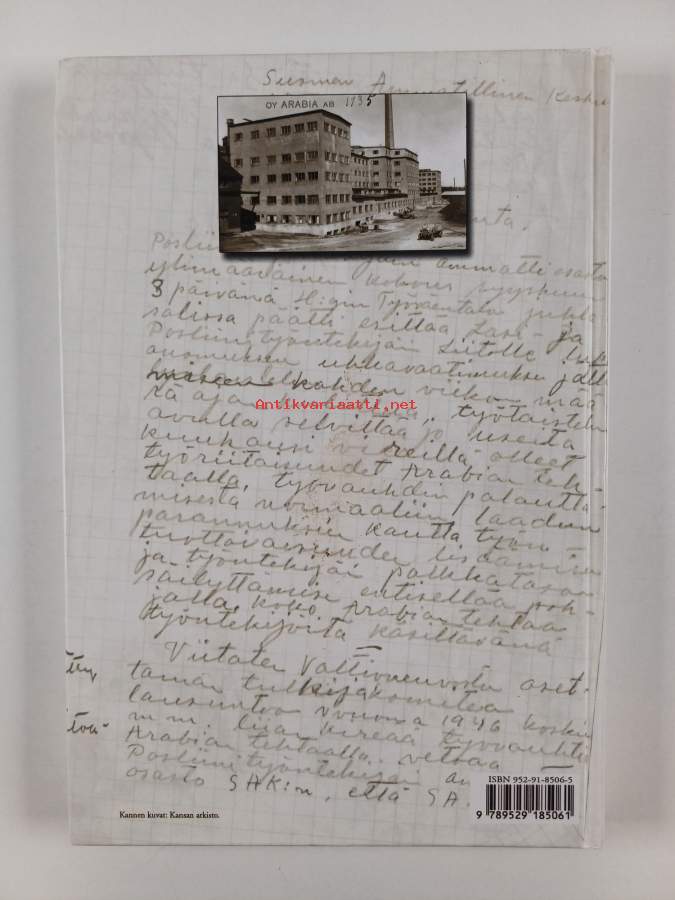 Suomen Ammatillinen Kesku
OY ARABIA AB 1935
ammatti osasto
ylimääräinen kokous syyskuun
8 päivänä H:gin Työväentalon juhla
salissa päätti esittää Lasi- ja
Posliinityöntekijäin Liitolle
uhkavaatimuksen
kahden viikon mää
työtaistelu
avulla selvittää jo useita
kuukausi vireillä olleet
työriitaisuudet Arabian teh-
taalla, työvauhdin palautta-
misesta normaaliin laadun
parannuksen kautta työn
tuottavaisuuden lisäämisen
ja työntekijäi palkkatason
säilyttämise entisellää poh-
jalla, koko Arabian tehtaa
työntekijöitä käsittävänä
Viitaten Valtioneuvosto aset-
taman tulkijakomitea
lausuntoo vuonna 1946 koskie
m.m. liian kireää työvauhti
Arabian tehtaalla, vetoaa
Posliinityöntekijäi an
osasto SAK:n, että SA.
Antikvariaatti.net
ISBN 952-91-8506-5
9 789529 185061
Kannen kuvat: Kansan arkisto.